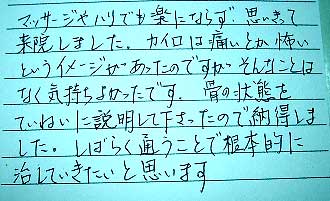 マッサージやハリでも楽にならず、思いきって
来院しました。カイロは痛いとか怖い
というイメージがあったのですがそんなことは
なく気持ちよかったです。骨の状態を
ていねいに説明して下さったので納得しま
した。しばらく通うことで根本的に
治していきたいと思います